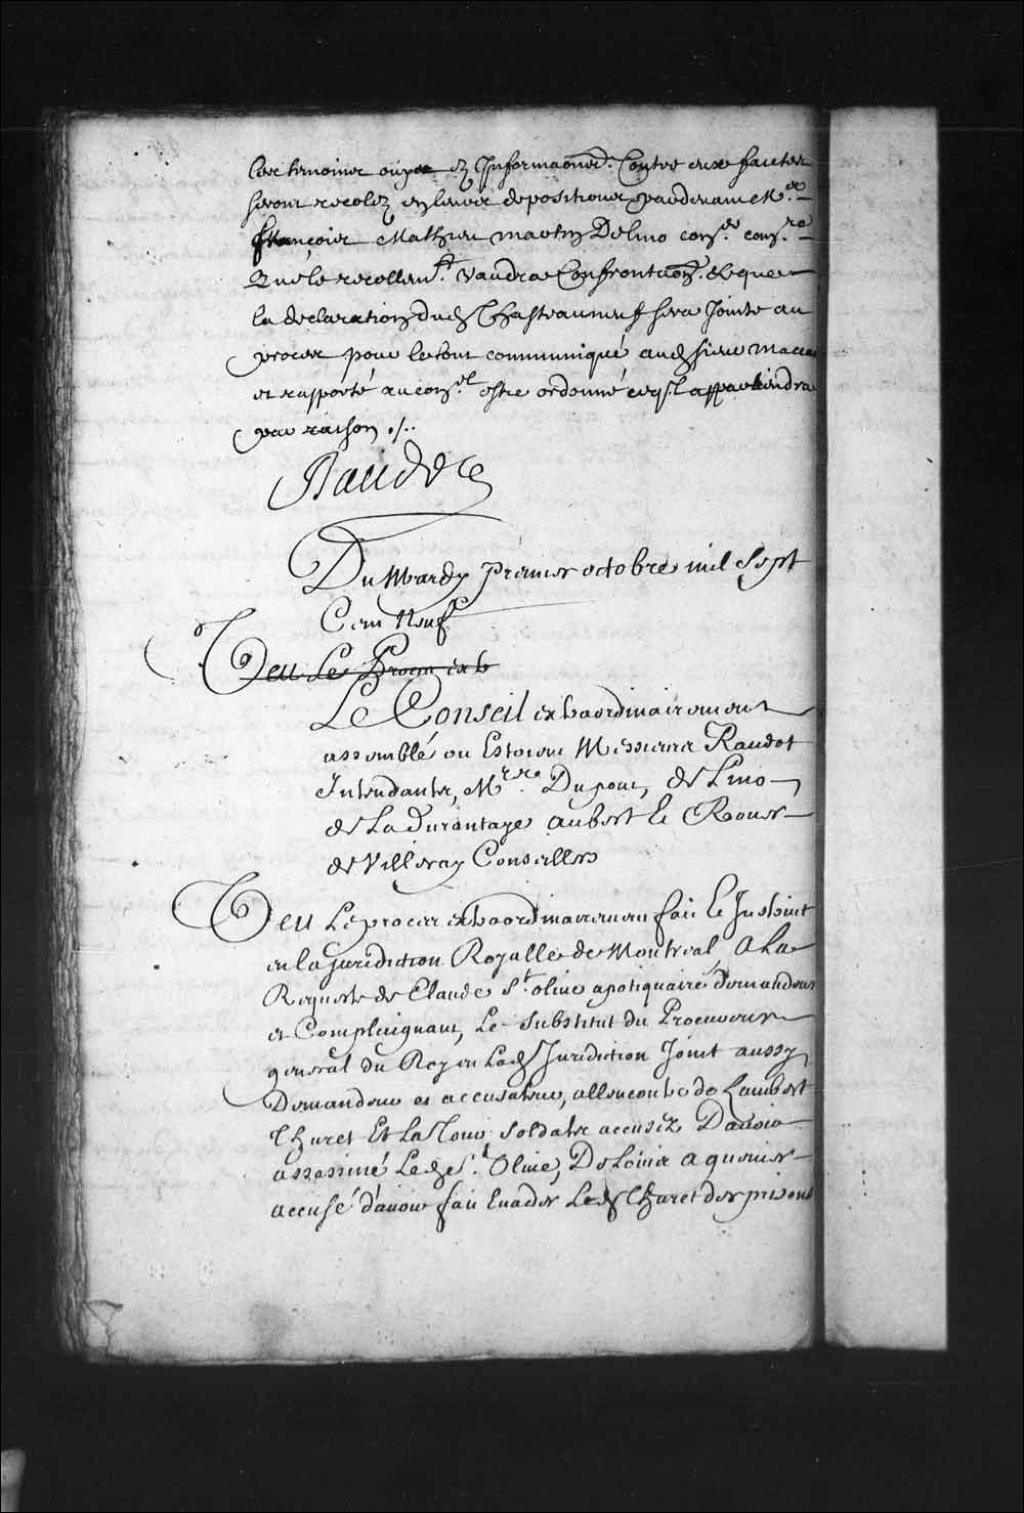 les temoins ouys es Informaõns. Contre eux faites
seront recolez en leurs depositions pardevant Me.
françois Mathieu martin Delino conser. comre.
Que le recollemt. vaudra Confrontaõn. Et que
la declaration dud Chasteauneuf sera Jointe au
procez pour le tout communiqué aud sieur macart
et rapporté au conseil estre ordonné ce qu'il appartiendra
par raison ./.
Raudot
Du Mardy premier octobre mil Sept
Cent Neuf
Veu Le Proces extr
Le Conseil extraordinairement
assemblé ou Estoient Messieurs Raudot
Intendants, Mrs. Dupont, de Lino
de La Durantaye aubert le Rouer
de Villeray Conseillers
Veu Le procez extraordinairement fait et Instruit
en la Juridiction Royalle de Montreal, a La
Requeste de Claude St. olive apotiquaire demandeur
et Compleignant, Le Substitut du Procureur
general du Roy en Lad Juridiction Joint aussy
Demandeur et accusateur, allencontre de Lambert
Thuret Et LaTour Soldats accusez Davoir
assassiné Led St. Olive, De Louis a querier
accusé d'avoir fait Evader Led Thuret des prisons